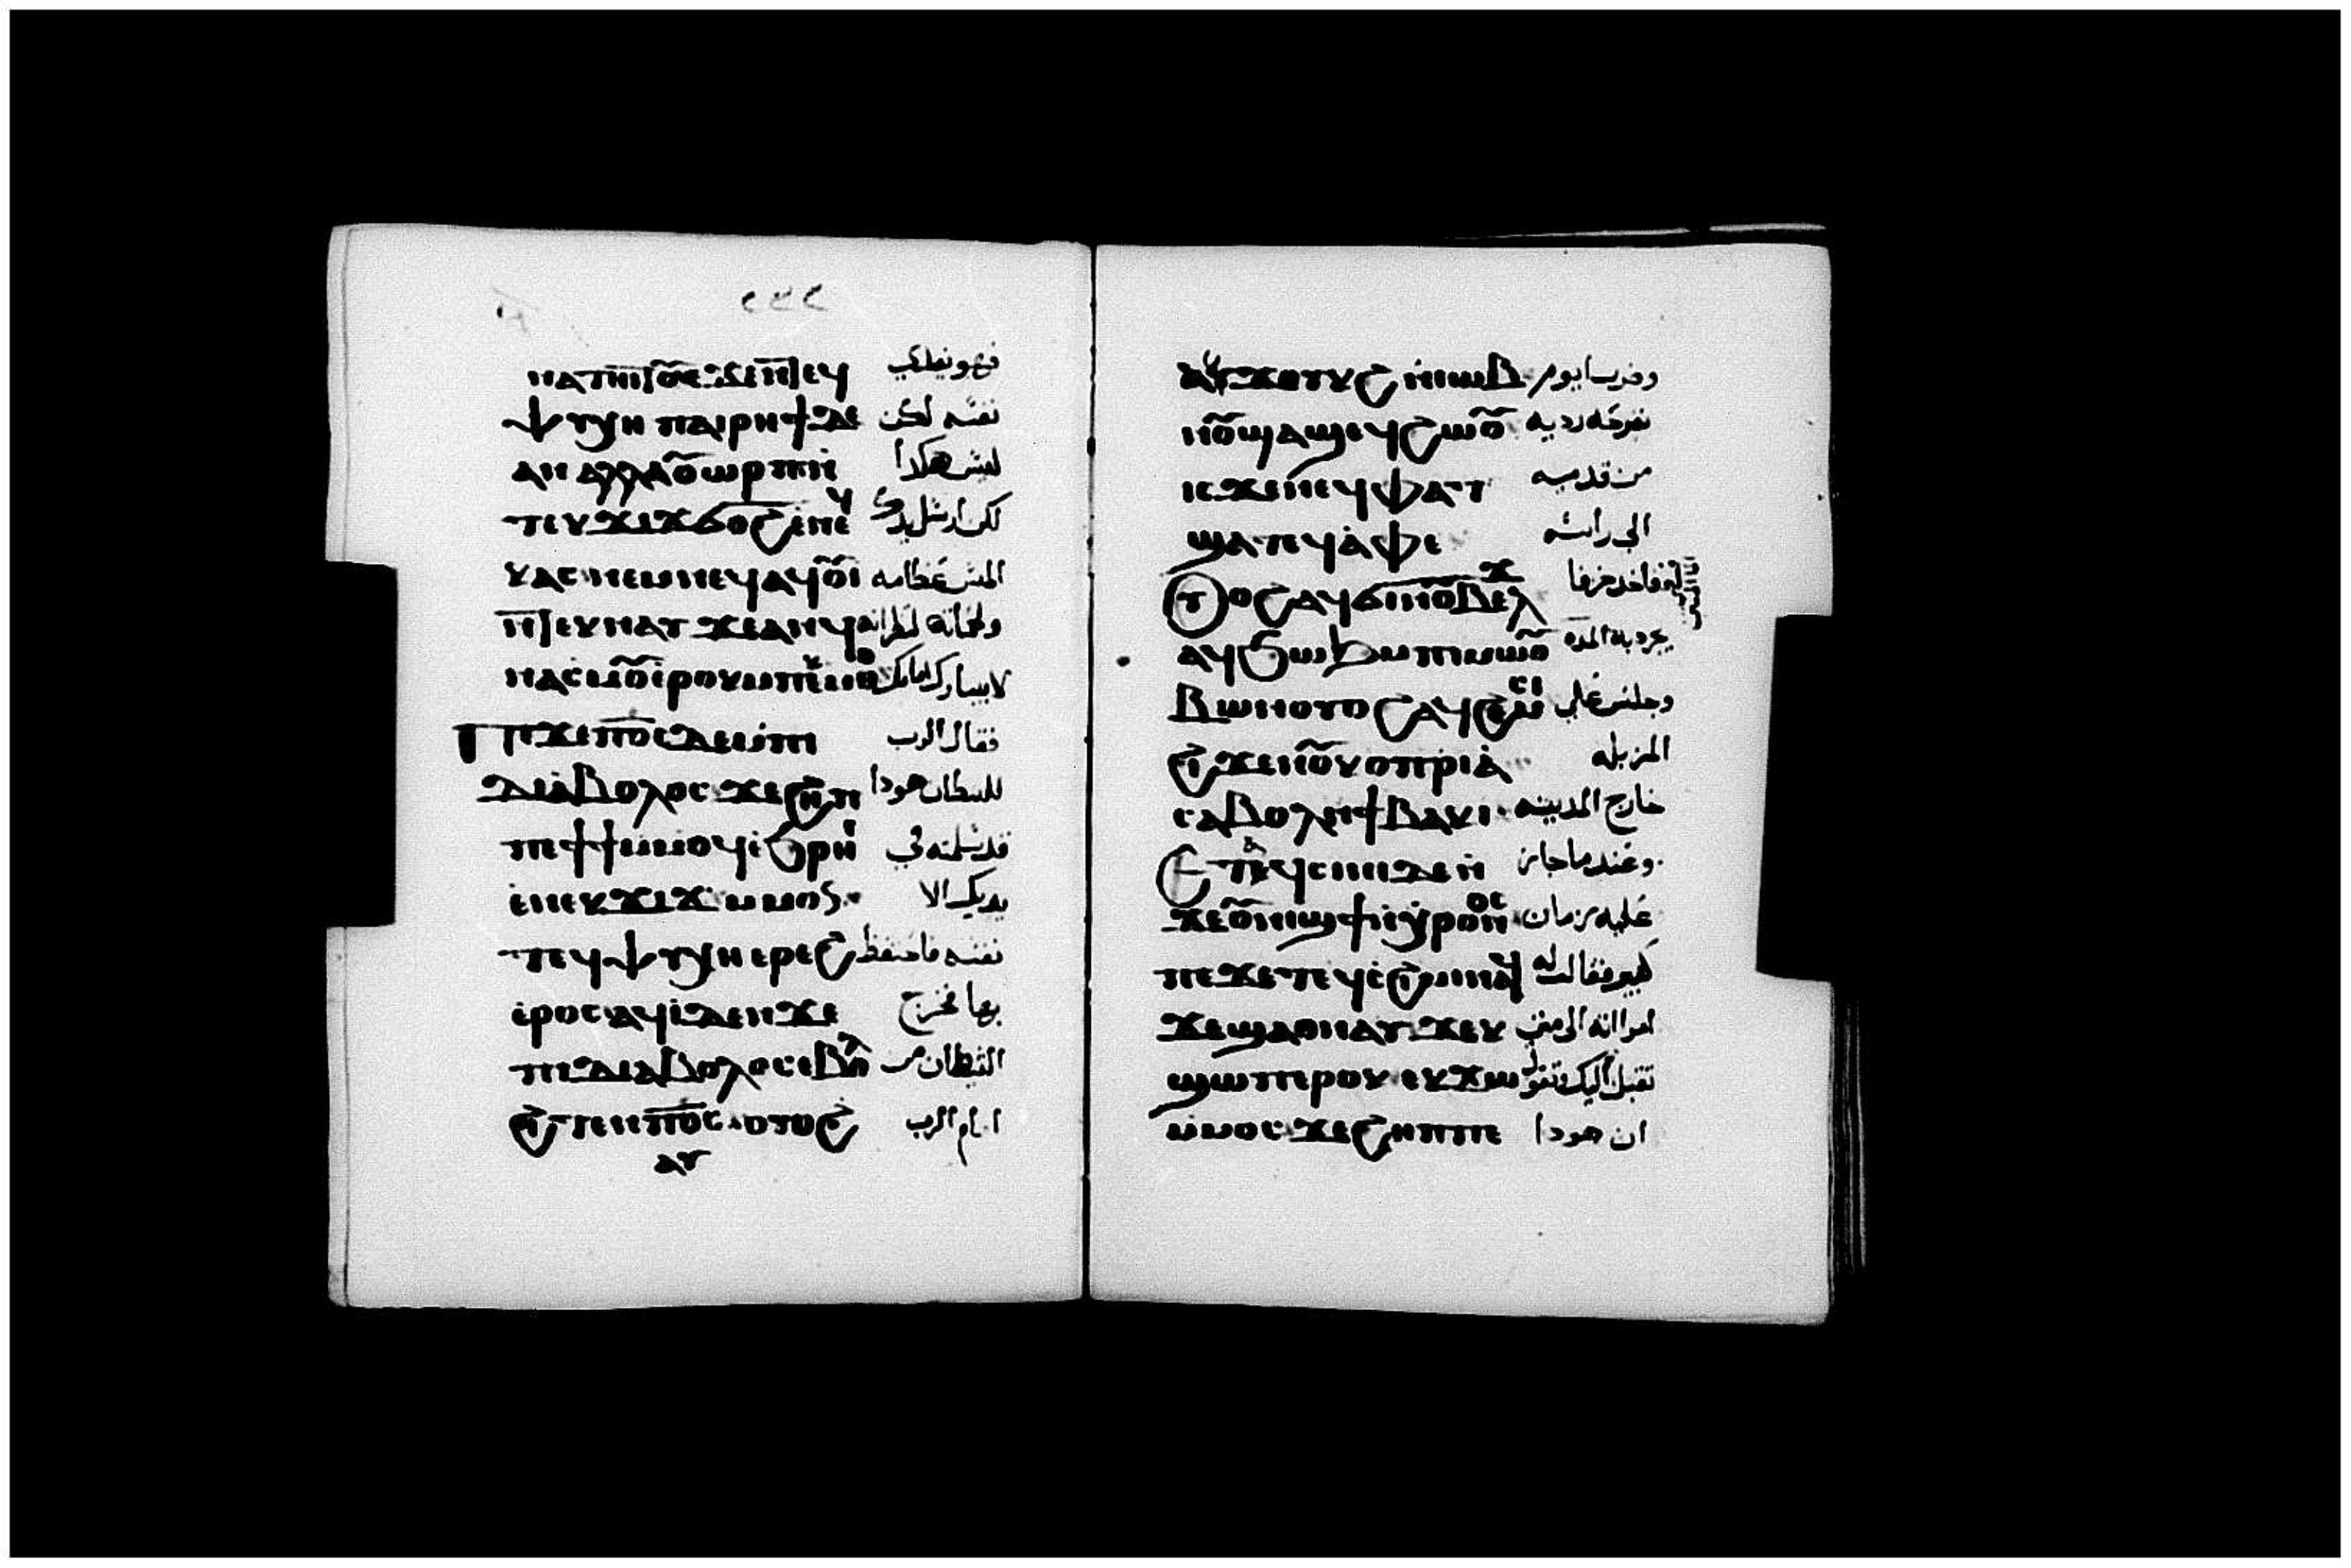 ⲛⲁⲧⲏⲓⲧⲟⲩⲉϫⲉⲛⲧⲉϥ فهو يعطي
ⲯⲩⲭⲏ ⲡⲁⲓⲣⲏϯ ⲇⲉ نفسه لكن
ⲁⲛ ⲁⲗⲗⲁ ⲟⲩⲱⲣⲡ ⲛ̇ ليس هكدا
ⲧⲉⲕϫⲓϫ ϭⲟϩ ⲉ̇ⲛⲉϥ لكن ارسل يدك
ⲕⲁⲥ ⲛⲉⲙ ⲛⲉϥⲁϥⲟⲩⲓ المس عظامه
ⲧⲉⲕⲛⲁⲩ ϫⲉ ⲁⲛ ϥ ولحمانه لترا انه
ⲛⲁⲥⲙⲟⲩ ⲉ̇ⲣⲟⲕ ⲙⲡⲉⲕⲙⲑⲟ لا يباركك امامك
ⲡⲉϫⲉ ⲡⲟ̅ⲥ̅ ⲇⲉ ⲙ̇ⲡⲓ فقال الرب
ⲇⲓⲁ̇ⲃⲟⲗⲟⲥ ϫⲉ ϩⲏⲡⲡ للشطان هودا
ⲡⲉ ϯϯ ⲙⲙⲟϥ ⲉ̇ϧⲣⲏⲓ قد سلمته في
ⲉ̇ⲛⲉⲕϫⲓϫ ⲙⲙⲟⲛ يديك الا
ⲧⲉϥⲯⲩⲭⲏ ⲁⲣⲉϩ نفسه فاحتفظ
ⲉ̇ⲣⲟⲥ ⲁϥⲓ̇ ⲇⲉ ⲛϫⲉ بها فخرج
ⲡⲓⲇⲓⲁⲃⲟⲗⲟⲥ ⲉⲃⲟⲗ الشطان من
ϩⲓⲧⲉⲛ ⲡⲟ̅ⲥ̅ ⲟⲩⲟϩ امام الرب
ⲁϥ
ⲁϥϫⲟⲧϫⲉⲧ ⲛ̇ⲓⲱⲃ وضرب ايوم
ⲛ̇ⲟⲩϣⲁϣ ⲉϥϩⲱⲟⲩ بقرحه رديه
ⲓⲥϫⲉⲛ ⲛⲉϥϭⲁⲗⲁⲩϫ من قدميه
ϣⲁ ⲧⲉϥⲁ̇ⲫⲉ الى راسه
ⲟⲩⲟϩ ⲁϥϭⲓ ⲛⲟⲩⲃⲉⲗϫ فاخد خزفا
ⲁϥϩⲱⲕ ⲙⲡⲓⲙⲱⲟⲩ يجرد به المده
ⲃⲱⲛ ⲟⲩⲟϩ ⲁϥϩⲉⲙⲥⲓ وجلس على
ϩⲓϫⲉⲛ ⲟⲩⲕⲟⲡⲣⲓⲁ̇ المزبله
ⲥⲁⲃⲟⲗ ⲛϯⲃⲁⲕⲓ خارج المدينه
ⲉⲧⲁϥⲥⲓⲛⲓ ⲇⲉ ⲛ̇ وعند ما جاز
ϫⲉ ⲟⲩⲛⲓϣϯ ⲛ̇ⲭⲣⲟⲛⲟⲥ عليه زمان
ⲡⲉϫⲉ ⲧⲉϥⲥ̇ϩⲓⲙⲓ ⲛⲁϥ كبير فقالت له
ϫⲉ ϣⲁ ⲑⲛⲁⲩ ⲭⲛ امراته الى متى
ϣⲱⲡ ⲉⲣⲟⲕ ⲉⲕϫⲱ تقبل اليك وتقول
ⲙ̇ⲙⲟⲥ ϫⲉ ϩⲏⲡⲡⲉ ان هودا